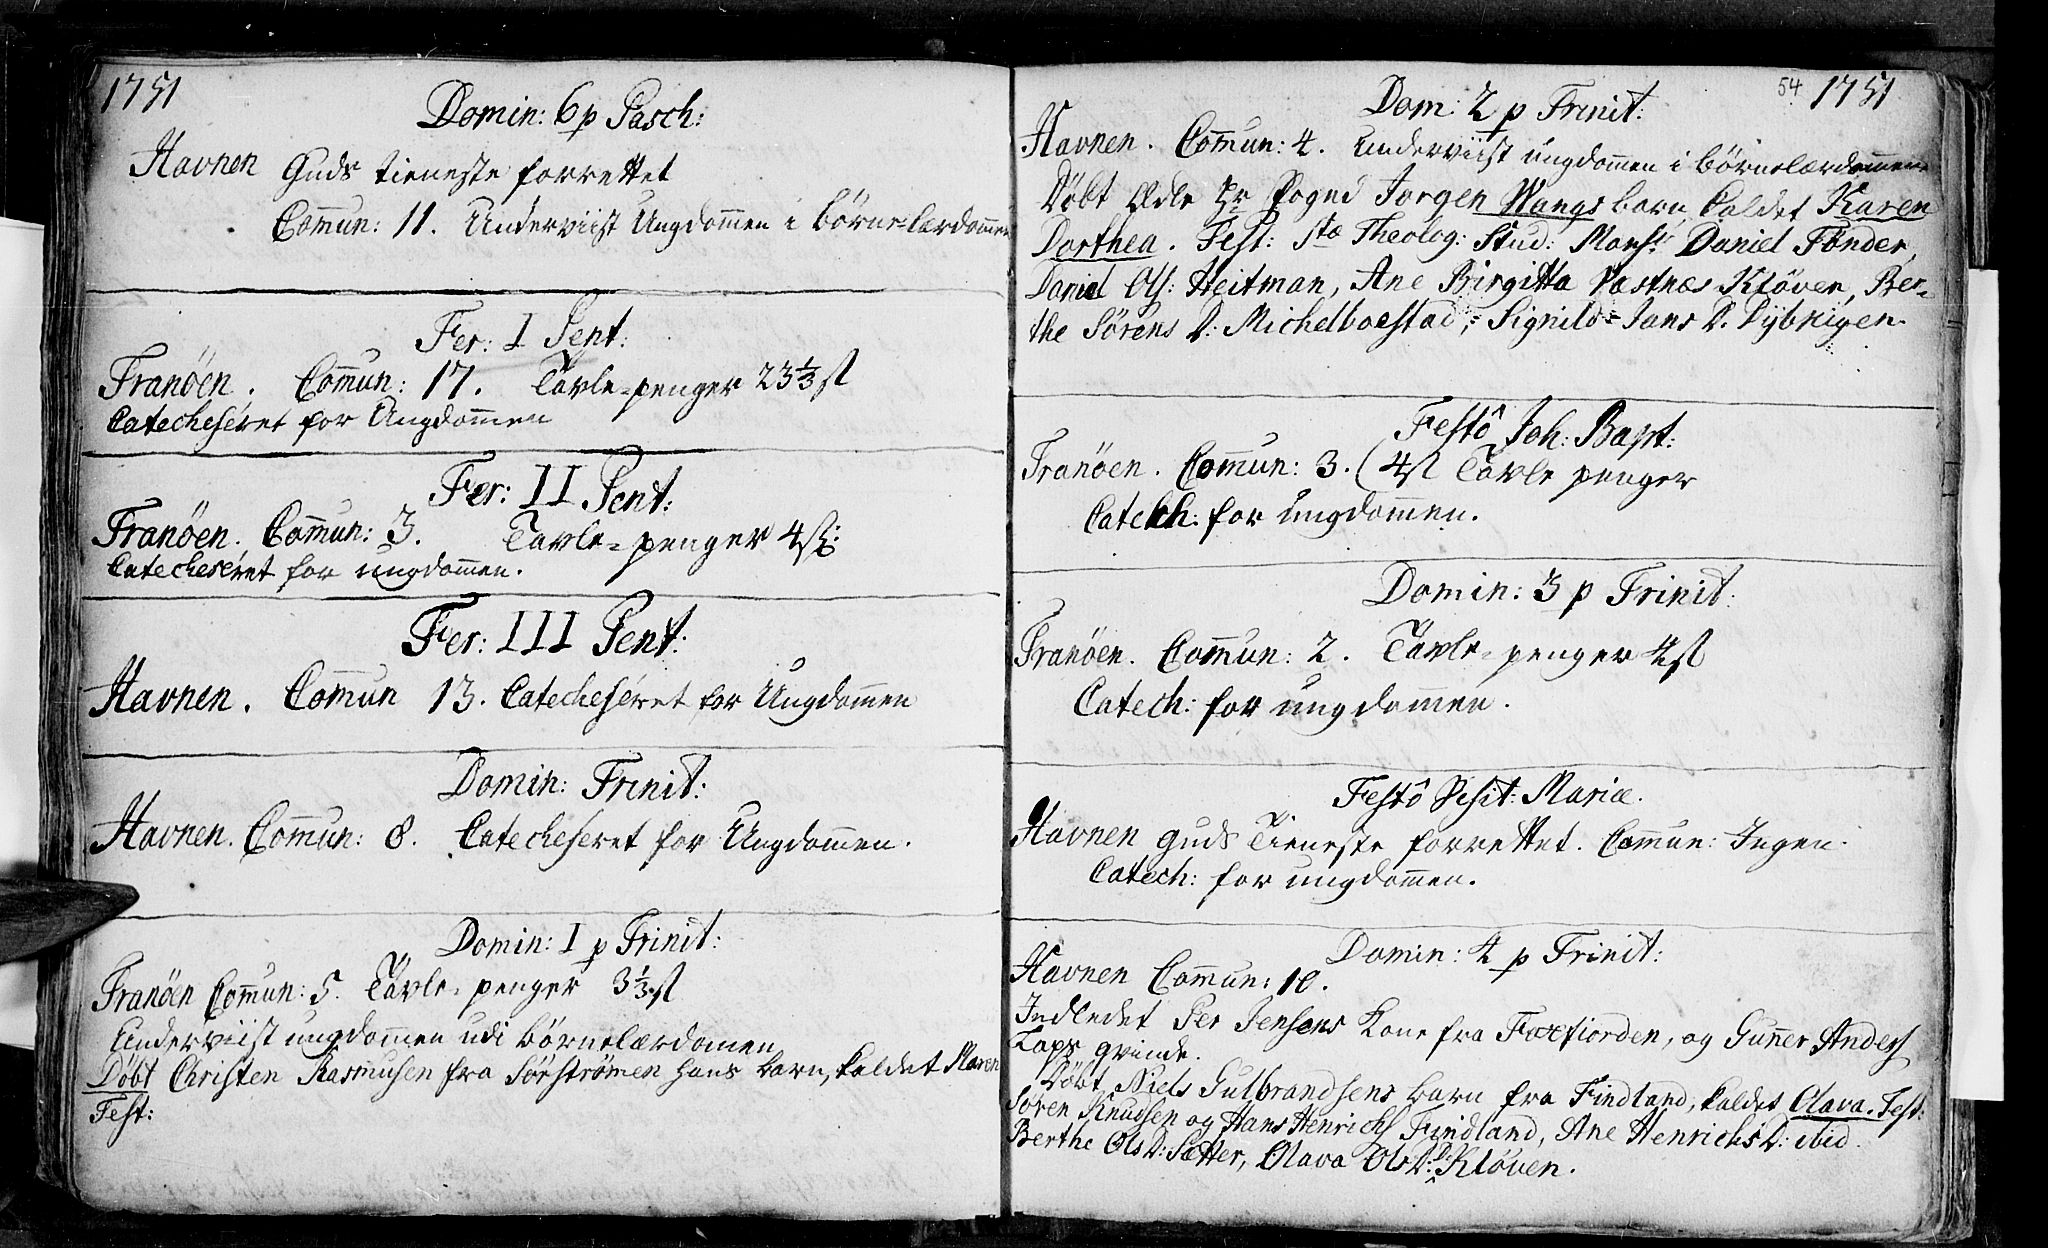 1751
Domin: 6 p Pasch:
Havnen Guds tieneste forrettet
Com̄un: 11. Underviist Ungdom̄en i børne-lærdom̄en
Fer: I Pent:
Tranöen. Com̄un: 17. Tavle-penger 23⅓ ß
Catecheséret for Ungdom̄en
Fer: II Pent:
Tranöen. Com̄un: 3. Tavle-penger 4 ß:
Catecheséret for ungdom̄en.
Fer: III Pent:
Havnen. Com̄un 13. Catecheséret for Ungdom̄en
Domin: Trinit:
Havnen. Com̄un: 8. Catecheseret for Ungdom̄en.
Domin: I p Trinit:
Tranöen Com̄un: 5. Tavle-penger 3⅓ ß
Underviist ungdom̄en udi børnelærdom̄en
Döbt Christen Rasmusen fra Sörströmen hans barn, kaldet Maren
Test:
54 1751
Dom: 2 p Trinit:
Havnen. Com̄un: 4. Underviist ungdom̄en i børnelærdom̄en
Döbt Ædle Hr Fogud Jorgen Wangs barn kaldet Karen
Dorthea. Test: Stæ Theolog: Stud: Monsr Daniel Tönder,
Daniel Ols: Heitman, Ane Birgitta Pastnæs Klöven, Ber-
the Sörens D: Michelboestad, Signild Jans D. Dybvigen.
Festô Joh: Bapt:
Tranöen. Com̄un: 3. (4 ß Tavle penger
Catech: for ungdom̄en.
Domin: 3 p Trinit:
Tranöen. Com̄un: 2. Tavle-penger 4 ß
Catech: for ungdom̄en.
Festô Visit: Mariæ.
Havnen Guds Tieneste forrettet. Com̄un: Ingen.
Catech: for ungdom̄en.
Domin: 4 p Trinit:
Havnen Com̄un: 10.
Indledet Per Jensens Kone fra Faxfiorden, og Gun̄er Anders
Laps qvinde.
Döbt, Niels Gulbrandsens barn fra Findland, kaldet Olava. Test:
Sören Knudsen og Hans Henrichs Findland, Ane Henrichs D: ibid
Berthe Ols D: Sætter, Olava Ols D: Klöven.